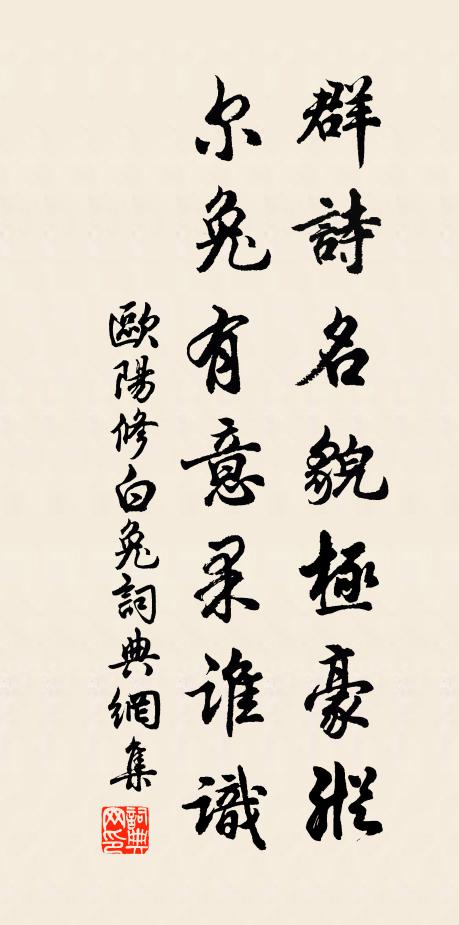 群詩名貌極豪縱
尔兔有意果誰識
歐陽修白兔詞典網集
詞典网印